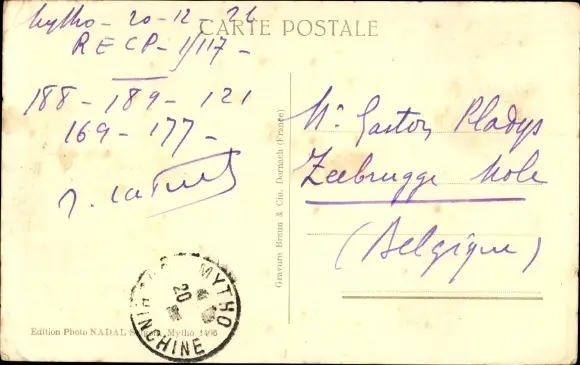 Mytho - 20-12
CARTE POSTALE
RECP - 1/117 -
188 - 189 - 121
169 - 177 -
Mr. Gaston Pladys
Zeebrugge Mole
(Belgique)
Gravure Braun & Cie, Dornach (France)
MYTHO
20
Edition Photo NADAL Mytho 1406